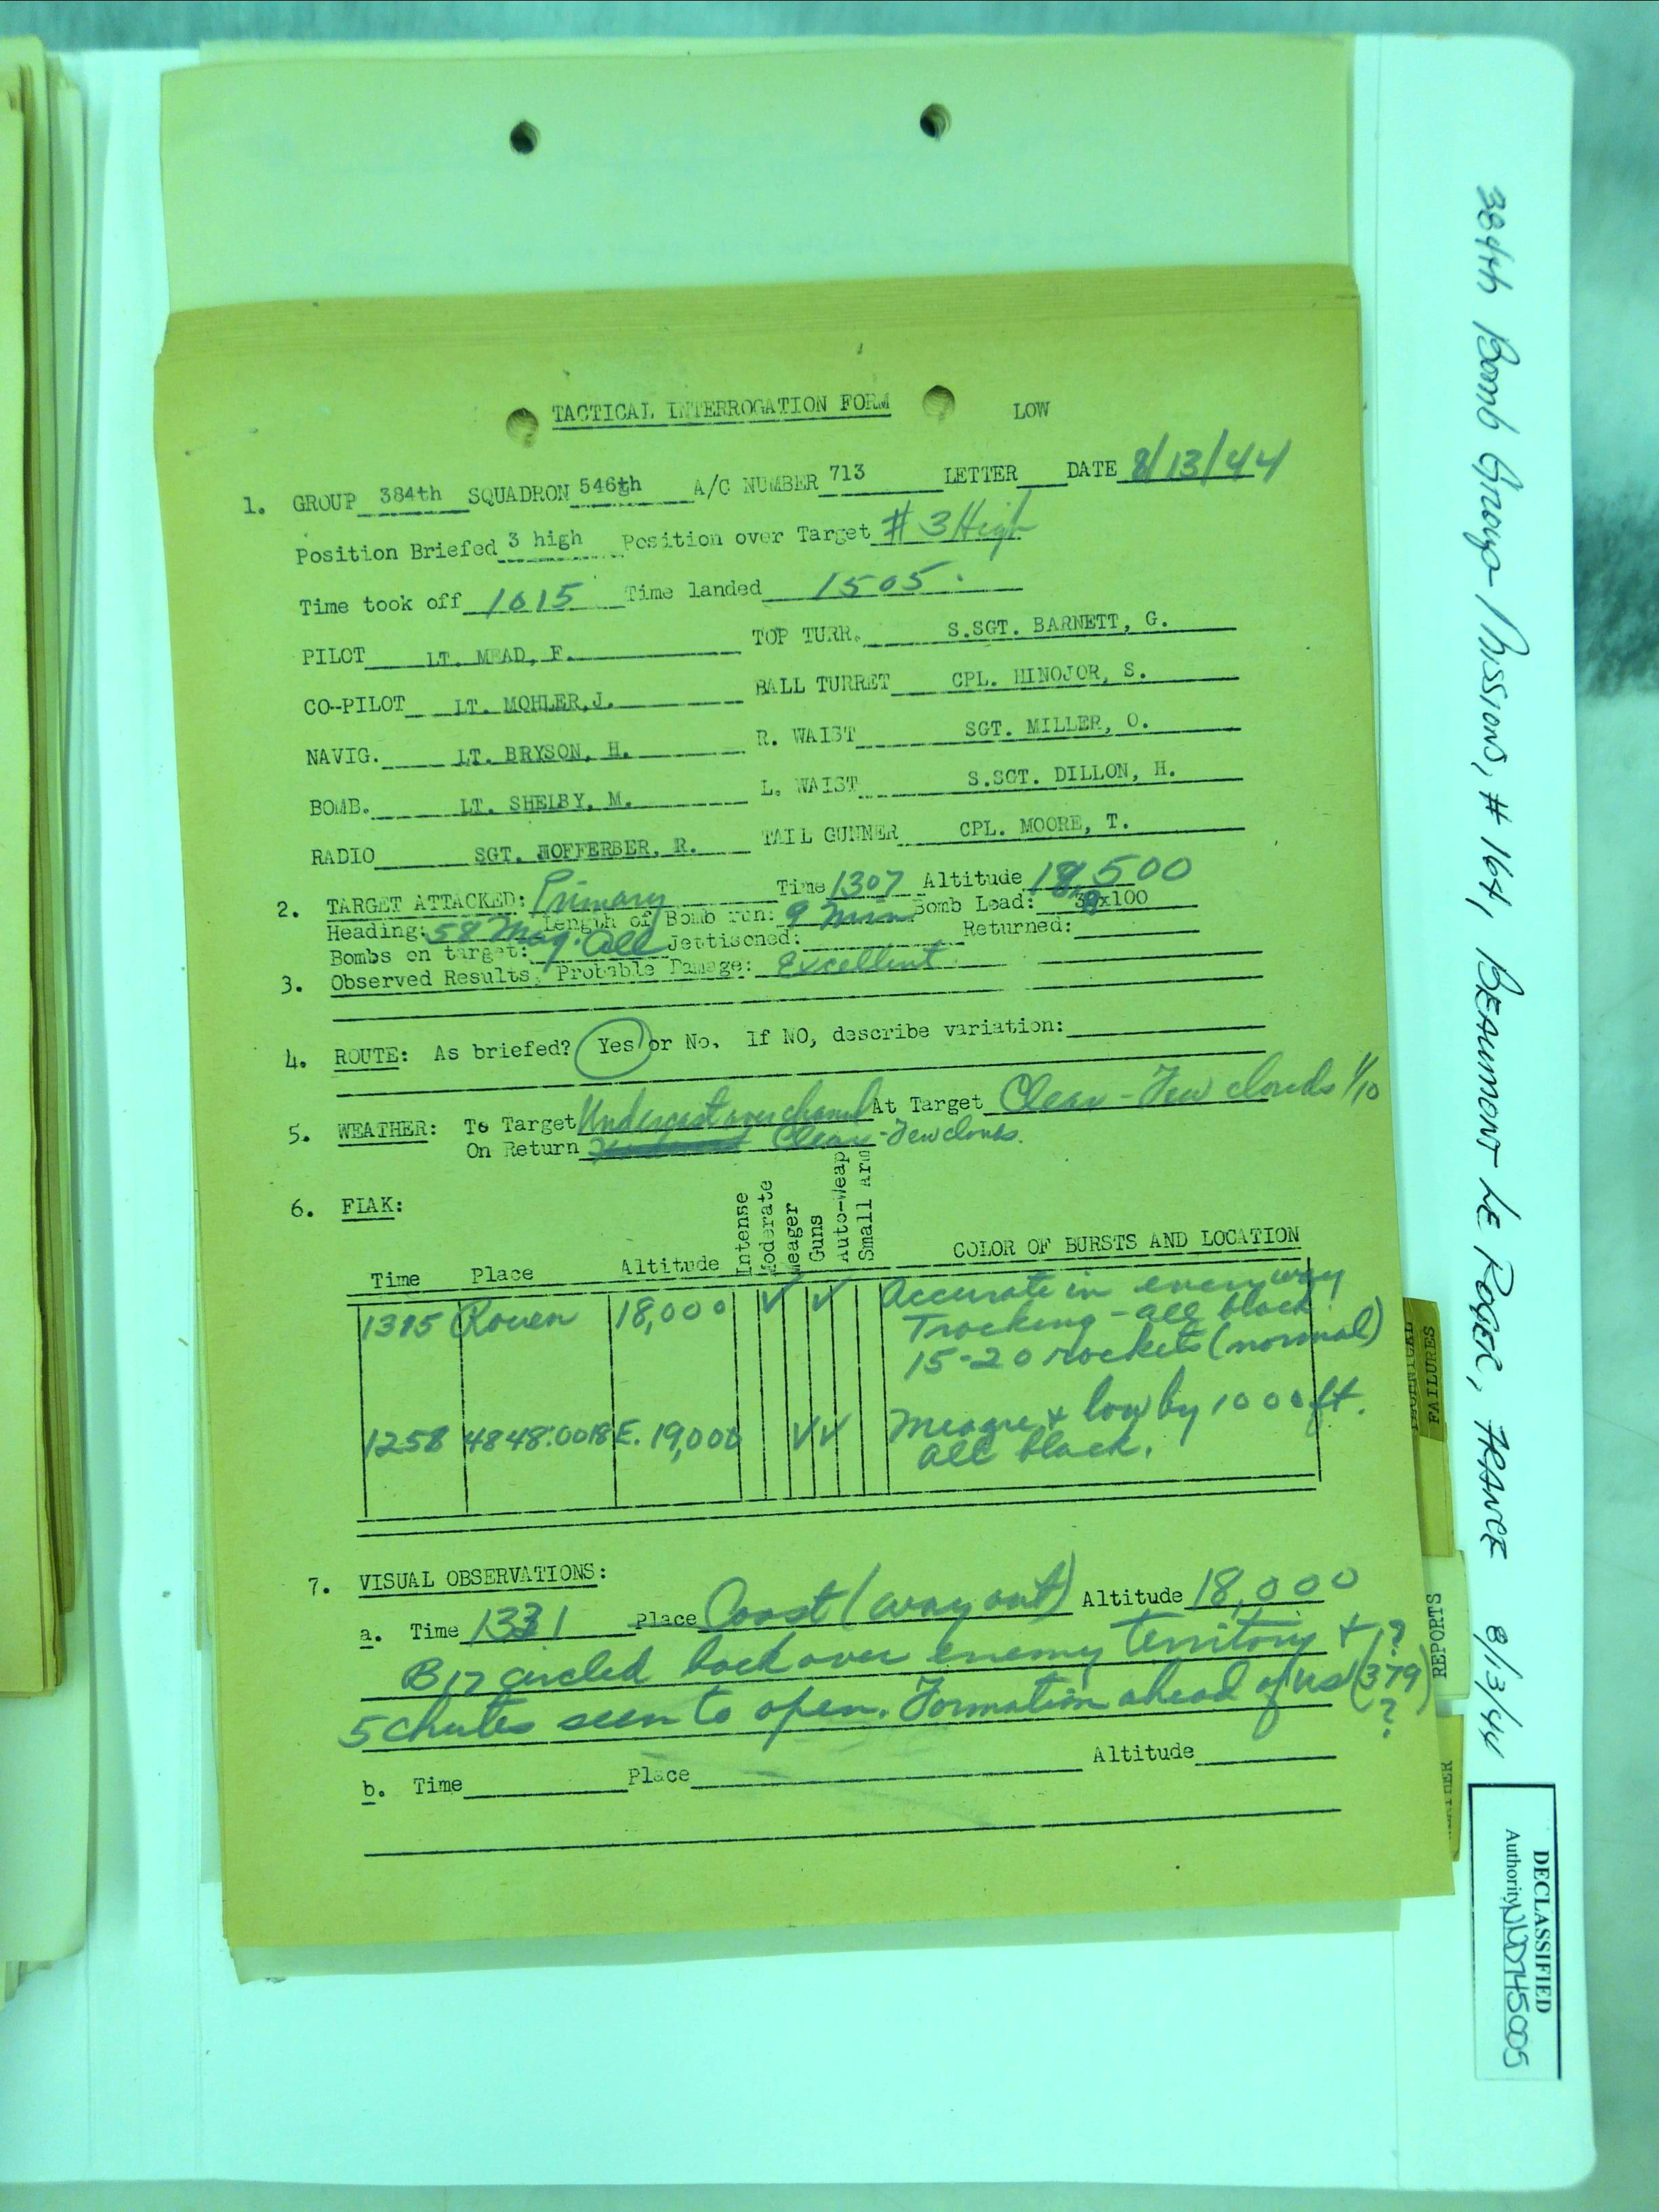 TACTICAL INTERROGATION FORM LOW
1. GROUP 384th SQUADRON 546th A/C NUMBER 713 LETTER DATE 8/13/44
Position Briefed 3 high Position over Target # 3 High
Time took off 1015 Time landed 1505.
PILOT LT. MEAD, F. TOP TURR. S.SGT. BARNETT, G.
CO-PILOT LT. MOHLER,J. BALL TURRET CPL. HINOJOR, S.
NAVIG. LT. BRYSON, H. R. WAIST SGT. MILLER, O.
BOMB. LT. SHELBY, M. L. WAIST S.SGT. DILLON, H.
RADIO SGT. HOFFERBER, R. TAIL GUNNER CPL. MOORE, T.
2. TARGET ATTACKED: Primary Time 1307 Altitude 18,500
Heading: 58 Mag. Length of Bomb run: 9 min Bomb Load: 38x100
Bombs on target: All Jettisoned: Returned:
3. Observed Results, Probable Damage: Excellent
4. ROUTE: As briefed? Yes or No. If NO, describe variation:
5. WEATHER: To Target Undercast over channel At Target Clear - Few clouds 1/10
On Return Clear - Few clouds.
6. FLAK:
Time Place Altitude Intense Moderate Meager Guns Auto-Weap Small Arm COLOR OF BURSTS AND LOCATION
1315 Rouen 18,000 ✓ ✓ Accurate in every way
Tracking - all black.
15-20 rockets (normal)
1258 4848:0018E. 19,000 ✓ ✓ Meagre & low by 1000 ft.
all black.
7. VISUAL OBSERVATIONS:
a. Time 1331 Place Coast (way out) Altitude 18,000
B17 circled back over enemy territory &
5 chutes seen to open. Formation ahead of us (379)
?
?
b. Time Place Altitude
384th Bomb Group - Missions, # 164, BEAUMONT LE ROGER, FRANCE 8/13/44
FAILURES
REPORTS
DECLASSIFIED
Authority NND745005